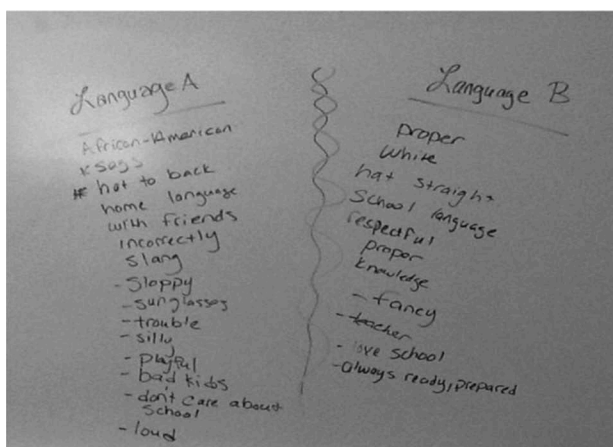 Language A
African-American
sags
# hat to back
home language
with friends
incorrectly
slang
- sloppy
- sunglasses
- trouble
- silly
- playful
- bad kids
- don't care about
school
- loud
Language B
proper
White
hat straight
School language
respectful
proper
knowledge
- fancy
- teacher
- love school
- always ready, prepared